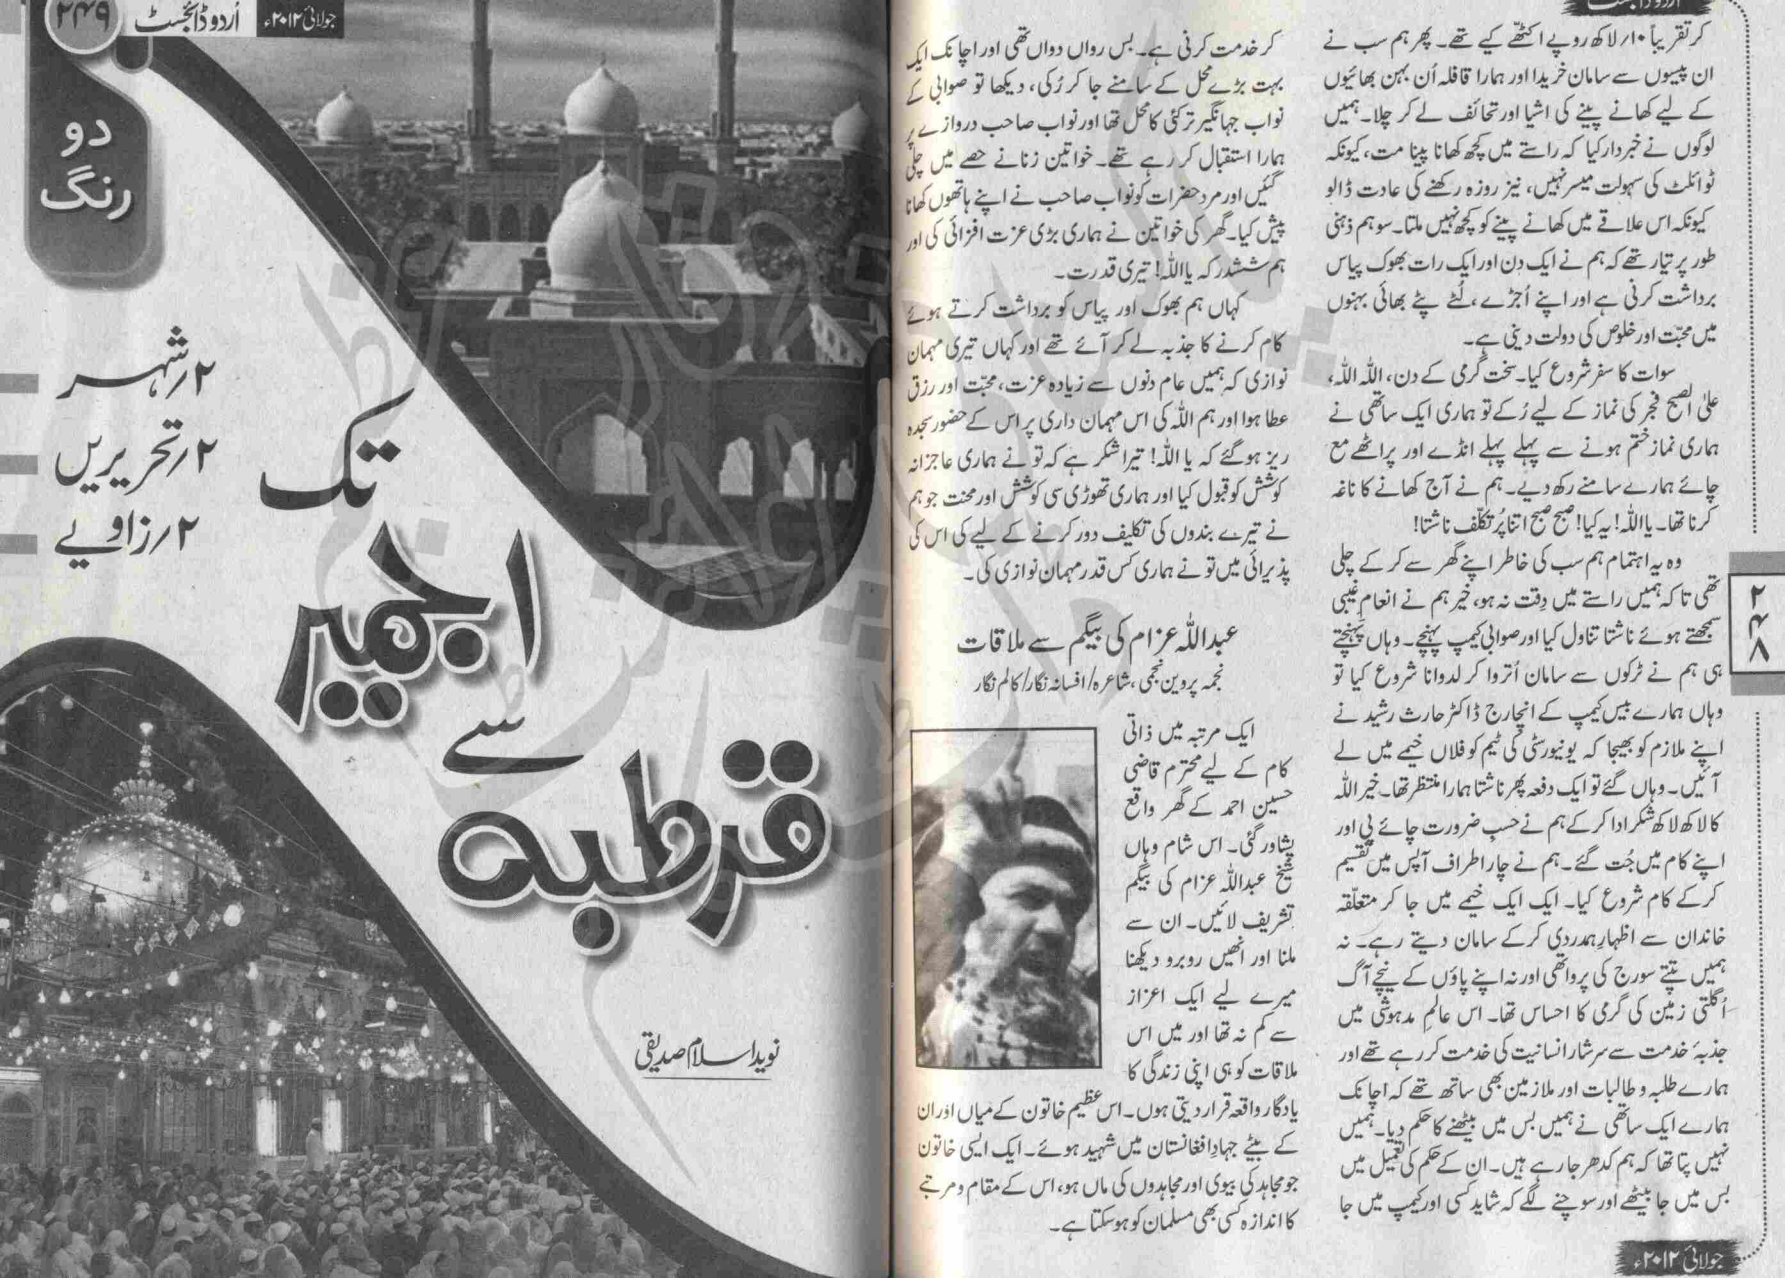 اُردو ڈائجسٹ
کر تقریباً ۱۰؍لاکھ روپے اکٹھے کیے تھے۔ پھر ہم سب نے
ان پیسوں سے سامان خریدا اور ہمارا قافلہ اُن بہن بھائیوں
کے لیے کھانے پینے کی اشیا اور تحائف لے کر چلا۔ ہمیں
لوگوں نے خبردار کیا کہ راستے میں کچھ کھانا پینا مت، کیونکہ
ٹوائلٹ کی سہولت میسر نہیں، نیز روزہ رکھنے کی عادت ڈالو
کیونکہ اس علاقے میں کھانے پینے کو کچھ نہیں ملتا۔ سو ہم ذہنی
طور پر تیار تھے کہ ہم نے ایک دن اور ایک رات بھوک پیاس
برداشت کرنی ہے اور اپنے اُجڑے، لُٹے پٹے بھائی بہنوں
میں محبّت اور خلوص کی دولت دینی ہے۔
سوات کا سفر شروع کیا۔ سخت گرمی کے دن، اللہ اللہ،
علیٰ الصبح فجر کی نماز کے لیے رُکے تو ہماری ایک ساتھی نے
ہماری نماز ختم ہونے سے پہلے پہلے انڈے اور پراٹھے مع
چائے ہمارے سامنے رکھ دیے۔ ہم نے آج کھانے کا ناغہ
کرنا تھا۔ یا اللہ! یہ کیا! صبح صبح اتنا پُرتکلّف ناشتا!
وہ یہ اہتمام ہم سب کی خاطر اپنے گھر سے کر کے چلی
تھی تا کہ ہمیں راستے میں دِقت نہ ہو، خیر ہم نے انعام غیبی
سمجھتے ہوئے ناشتا تناول کیا اور صوابی کیمپ پہنچے۔ وہاں پہنچتے
ہی ہم نے ٹرکوں سے سامان اُتروا کر لدوانا شروع کیا تو
وہاں ہمارے بیس کیمپ کے انچارج ڈاکٹر حارث رشید نے
اپنے ملازم کو بھیجا کہ یونیورسٹی کی ٹیم کو فلاں خیمے میں لے
آئیں۔ وہاں گئے تو ایک دفعہ پھر ناشتا ہمارا منتظر تھا۔ خیر اللہ
کا لاکھ لاکھ شکر ادا کر کے ہم نے حسبِ ضرورت چائے پی اور
اپنے کام میں جُت گئے۔ ہم نے چار اطراف آپس میں تقسیم
کر کے کام شروع کیا۔ ایک ایک خیمے میں جا کر متعلّقہ
خاندان سے اظہارِ ہمدردی کر کے سامان دیتے رہے۔ نہ
ہمیں تپتے سورج کی پروا تھی اور نہ اپنے پاؤں کے نیچے آگ
اُگلتی زمین کی گرمی کا احساس تھا۔ اس عالمِ مدہوشی میں
جذبۂ خدمت سے سرشار انسانیت کی خدمت کر رہے تھے اور
ہمارے طلبہ و طالبات اور ملازمین بھی ساتھ تھے کہ اچانک
ہمارے ایک ساتھی نے ہمیں بس میں بیٹھنے کا حکم دیا۔ ہمیں
نہیں پتا تھا کہ ہم کدھر جا رہے ہیں۔ ان کے حکم کی تعمیل میں
بس میں جا بیٹھے اور سوچنے لگے کہ شاید کسی اور کیمپ میں جا
۲۴۸
جولائی ۲۰۱۲ء
کر خدمت کرنی ہے۔ بس رواں دواں تھی اور اچانک ایک
بہت بڑے محل کے سامنے جا کر رُکی، دیکھا تو صوابی کے
نواب جہانگیر ترکئی کا محل تھا اور نواب صاحب دروازے پر
ہمارا استقبال کر رہے تھے۔ خواتین زنانے حصے میں چلی
گئیں اور مرد حضرات کو نواب صاحب نے اپنے ہاتھوں کھانا
پیش کیا۔ گھر کی خواتین نے ہماری بڑی عزت افزائی کی اور
ہم ششدر کہ یا اللہ! تیری قدرت۔
کہاں ہم بھوک اور پیاس کو برداشت کرتے ہوئے
کام کرنے کا جذبہ لے کر آئے تھے اور کہاں تیری مہمان
نوازی کہ ہمیں عام دنوں سے زیادہ عزت، محبّت اور رزق
عطا ہوا اور ہم اللہ کی اس مہمان داری پر اس کے حضور سجدہ
ریز ہو گئے کہ یا اللہ! تیرا شکر ہے کہ تو نے ہماری عاجزانہ
کوشش کو قبول کیا اور ہماری تھوڑی سی کوشش اور محنت جو ہم
نے تیرے بندوں کی تکلیف دور کرنے کے لیے کی اس کی
پذیرائی میں تو نے ہماری کس قدر مہمان نوازی کی۔
عبداللہ عزام کی بیگم سے ملاقات
نجمہ پروین نجمی، شاعرہ/افسانہ نگار/کالم نگار
ایک مرتبہ میں ذاتی
کام کے لیے محترم قاضی
حسین احمد کے گھر واقع
پشاور گئی۔ اس شام وہاں
شیخ عبداللہ عزام کی بیگم
تشریف لائیں۔ ان سے
ملنا اور انھیں روبرو دیکھنا
میرے لیے ایک اعزاز
سے کم نہ تھا اور میں اس
ملاقات کو ہی اپنی زندگی کا
یادگار واقعہ قرار دیتی ہوں۔ اس عظیم خاتون کے میاں اور ان
کے بیٹے جہادِ افغانستان میں شہید ہوئے۔ ایک ایسی خاتون
جو مجاہد کی بیوی اور مجاہدوں کی ماں ہو، اس کے مقام و مرتبے
کا اندازہ کسی بھی مسلمان کو ہو سکتا ہے۔
جولائی ۲۰۱۲ء
اُردو ڈائجسٹ
۲۴۹
دو
رنگ
۲؍شہر
۲؍تحریریں
۲؍زاویے
تک
اجمیر
سے
قرطبہ
نوید اسلام صدیقی